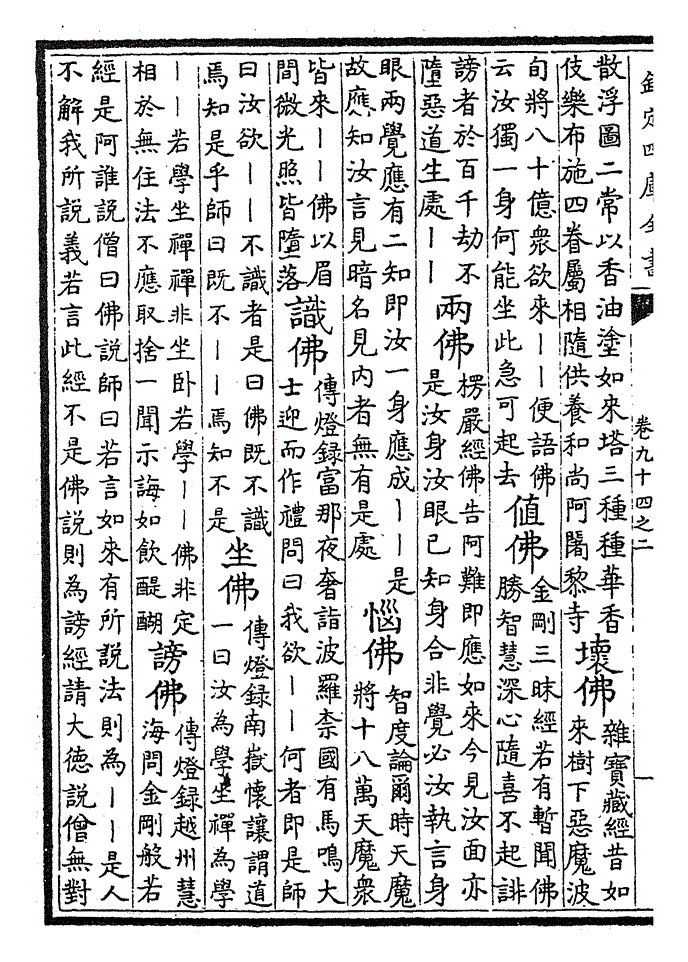 欽定四庫全書
卷九十四之二
一
散浮圖二常以香油塗如來塔三種種華香
伎樂布施四眷屬相隨供養和尚阿闍黎寺
壞佛
雜寶藏經昔如
來樹下惡魔波
旬將八十億衆欲來丨丨便語佛
云汝獨一身何能坐此急可起去
值佛
金剛三昧經若有暫聞佛
勝智慧深心隨喜不起誹
謗者於百千劫不
墮惡道生處丨丨
兩佛
楞嚴經佛告阿難即應如來今見汝面亦
是汝身汝眼已知身合非覺必汝執言身
眼兩覺應有二知即汝一身應成丨丨是
故應知汝言見暗名見内者無有是處
惱佛
智度論爾時天魔
將十八萬天魔衆
皆來丨丨佛以眉
間微光照皆墮落
識佛
傳燈錄富那夜奢詣波羅柰國有馬鳴大
士迎而作禮問曰我欲丨丨何者即是師
曰汝欲丨丨不識者是曰佛既不識
焉知是乎師曰既不丨丨焉知不是
坐佛
傳燈錄南嶽懷讓謂道
一曰汝為學坐禪為學
丨丨若學坐禪禪非坐卧若學丨丨佛非定
相於無住法不應取捨一聞示誨如飲醍醐
謗佛
傳燈錄越州慧
海問金剛般若
經是阿誰說僧曰佛說師曰若言如來有所說法則為丨丨是人
不解我所說義若言此經不是佛說則為謗經請大德說僧無對